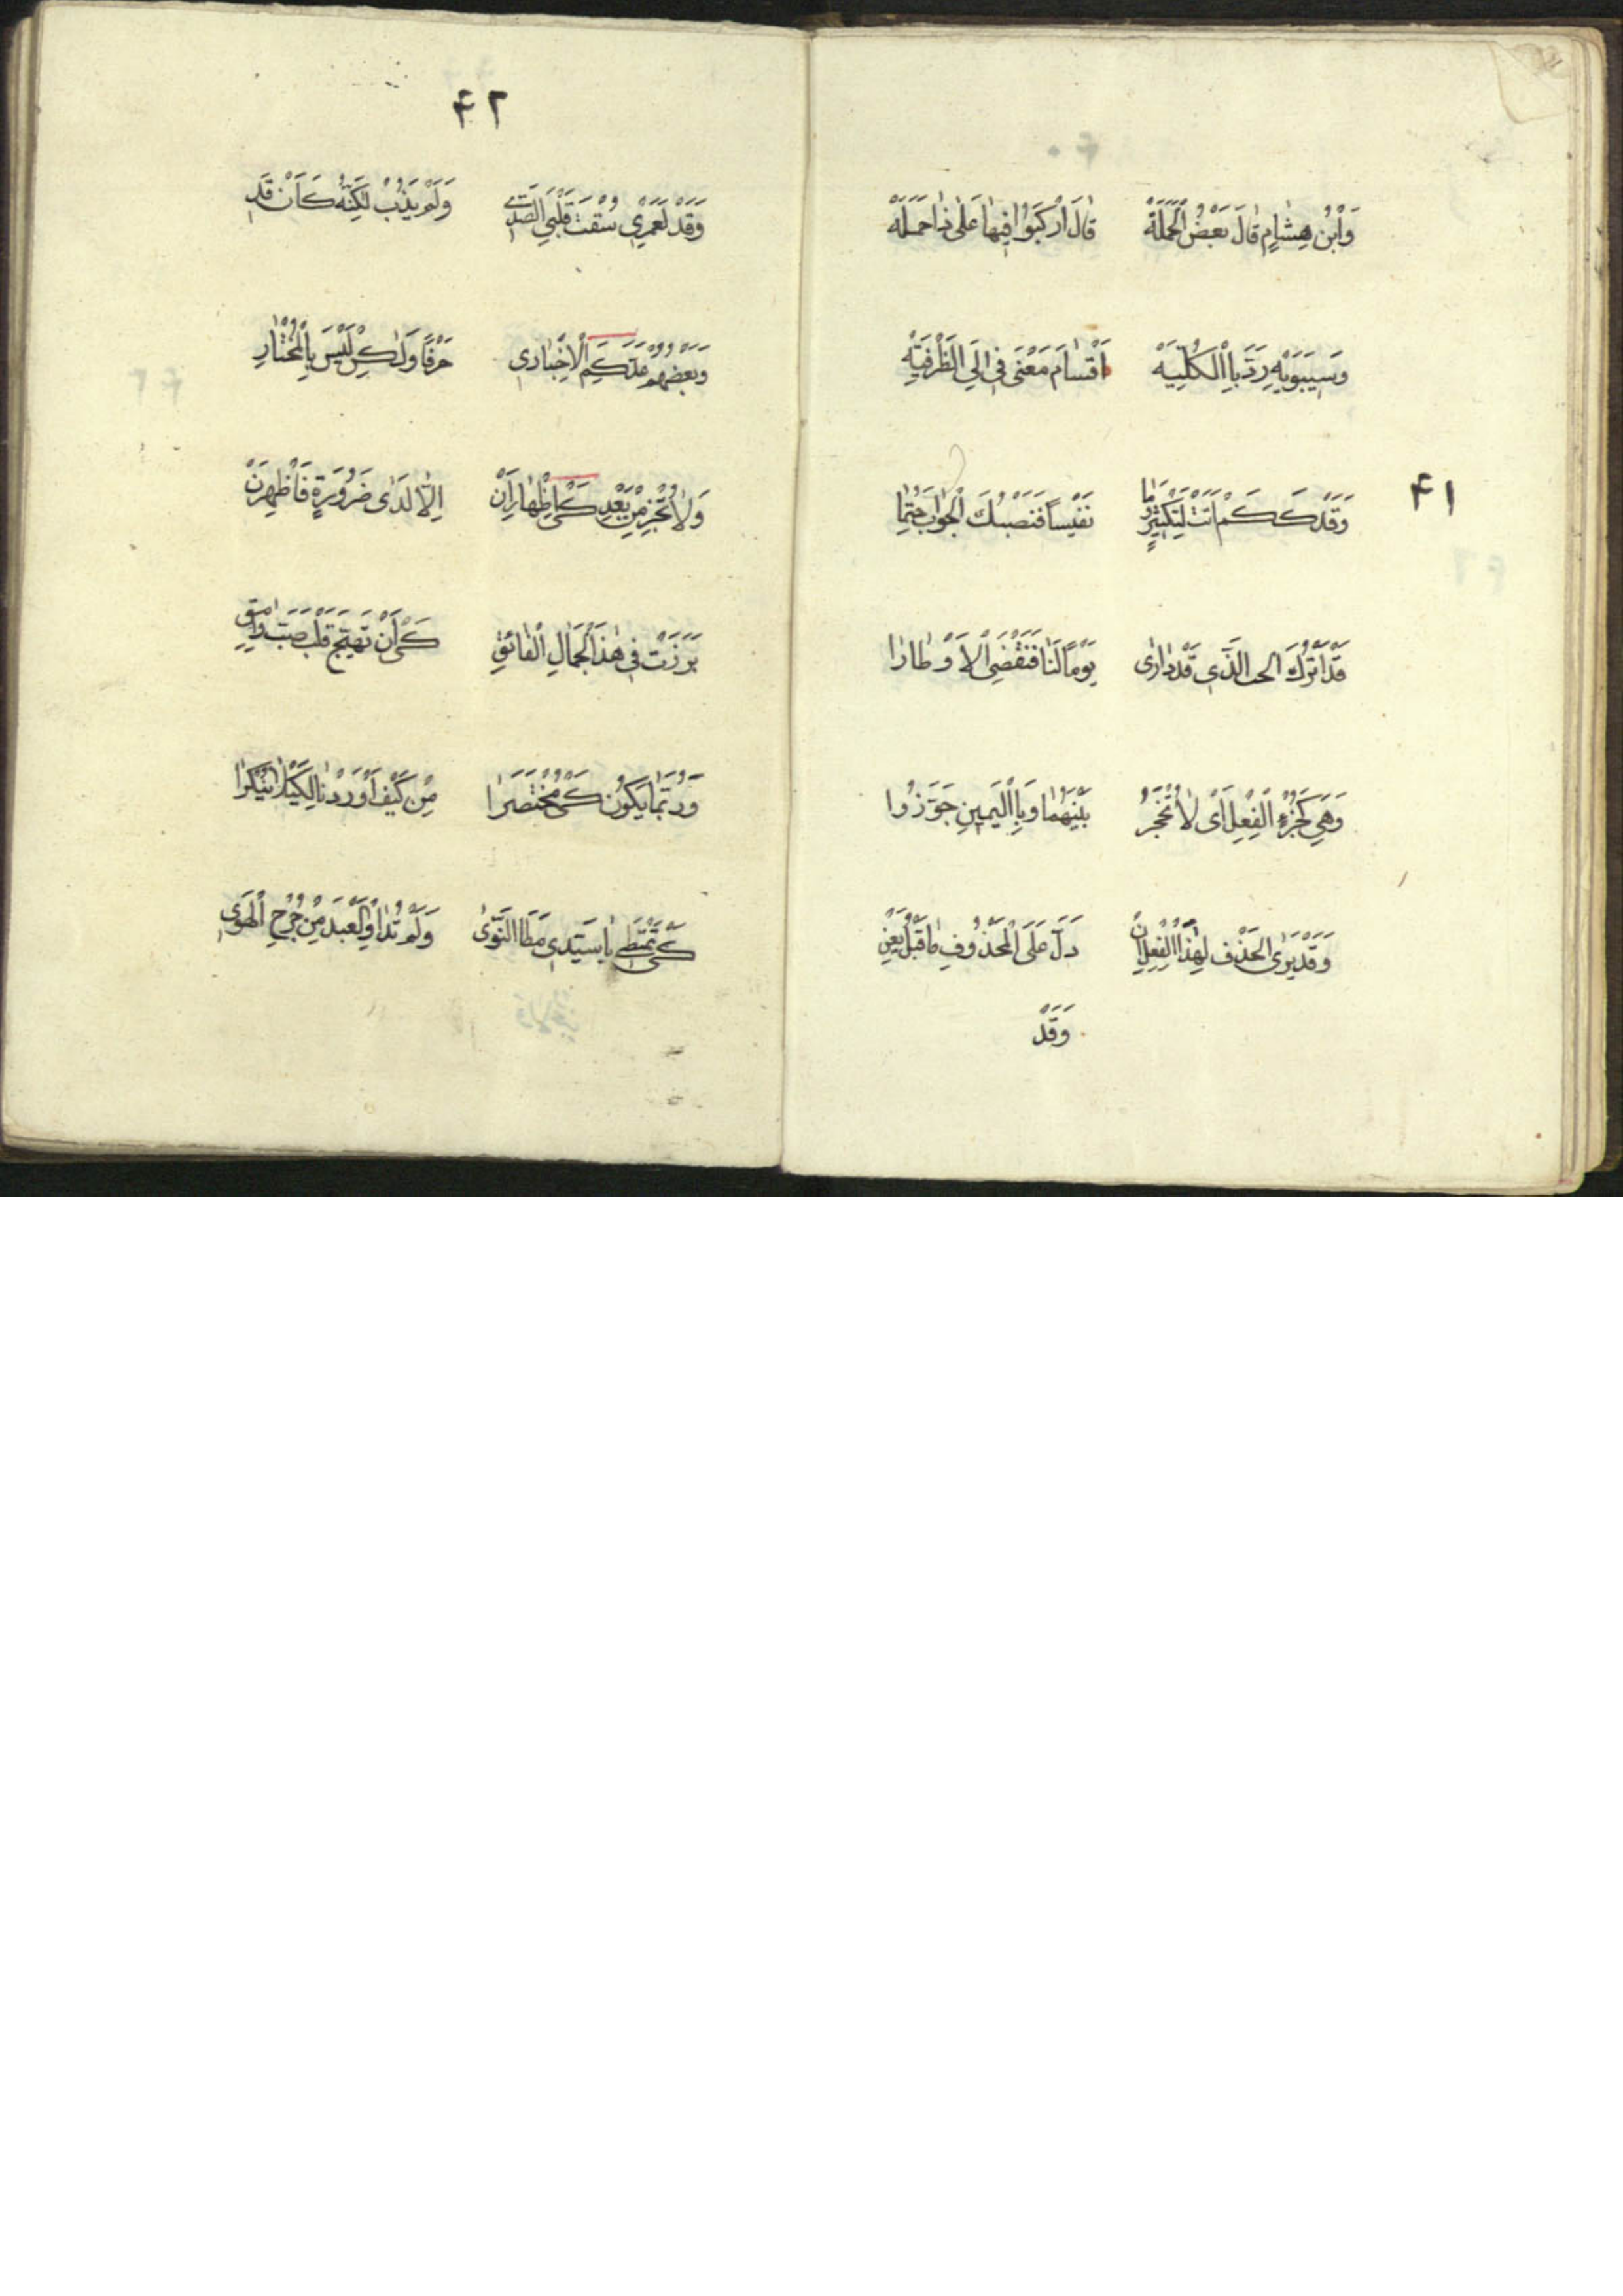 ۴۱
وَابْنُ هِشَامٍ قَالَ بَعْضُ الْحَمَلَةْ قَالَ ارْكَبُوا فِيهَا عَلَى ذَا حَمَلَهْ
وَسِيبَوَيْهِ رَدَّ بِالْكُلِّيَهْ أَقْسَامَ مَعْنَى فِى إِلَى الظَّرْفِيَّهْ
وَقَدْ كَكَمْ أَتَتْ لِتَكْثِيرٍ وَمَا نَفْيًا فَنَصْبُكَ الْجَوَابَ حَتِّمَا
قَدْ أَتْرُكُ الَّذِى قَدْ دَارَى يَوْمًا لَنَا فَنَقْضِىَ الْأَوْطَارَا
وَهِىَ كَجُزْءِ الْفِعْلِ أَىْ لَا تَحْجُزُ بَيْنَهُمَا وَبِالْيَمِينِ جَوَّزُوا
وَقَدْ يُرَى الْحَذْفُ لِهَذَا الْفِعْلِ إِنْ دَلَّ عَلَى الْمَحْذُوفِ مَا قَبْلُ يَعِنْ
وَقَدْ
۴۲
وَقَدْ لَعَمْرِى سُقْتَ قَلْبِى لِلصَّدَى وَلَمْ يَذُبْ لَكِنَّهُ كَأَنْ قَدِ
وَبَعْضُهُمْ عَدَّ كَكَمِ الْإِخْبَارِى حَرْفًا وَلَكِنْ لَيْسَ بِالْمُخْتَارِ
وَلَا تُجِزْ مِنْ بَعْدِ كَىْ إِظْهَارَ أَنْ إِلَّا لَدَى ضَرُورَةٍ فَأَظْهِرَنْ
بَرَزْتَ فِى هَذَا الْجَمَالِ الْفَائِقِ كَىْ أَنْ تُهَيِّجَ قَلْبَ صَبٍّ وَامِقِ
وَرُبَّمَا يَكُونُ كَىْ مُخْتَصَرَا مِنْ كَيْفَ أَوْرَدْنَا لِكَيْلَا يُنْكَرَا
كَىْ تَمْتَطِى يَا سَيِّدِى مَطَا النَّوَى وَلَمْ تُدَاوِ الْعَبْدَ مِنْ جُرْحِ الْهَوَى